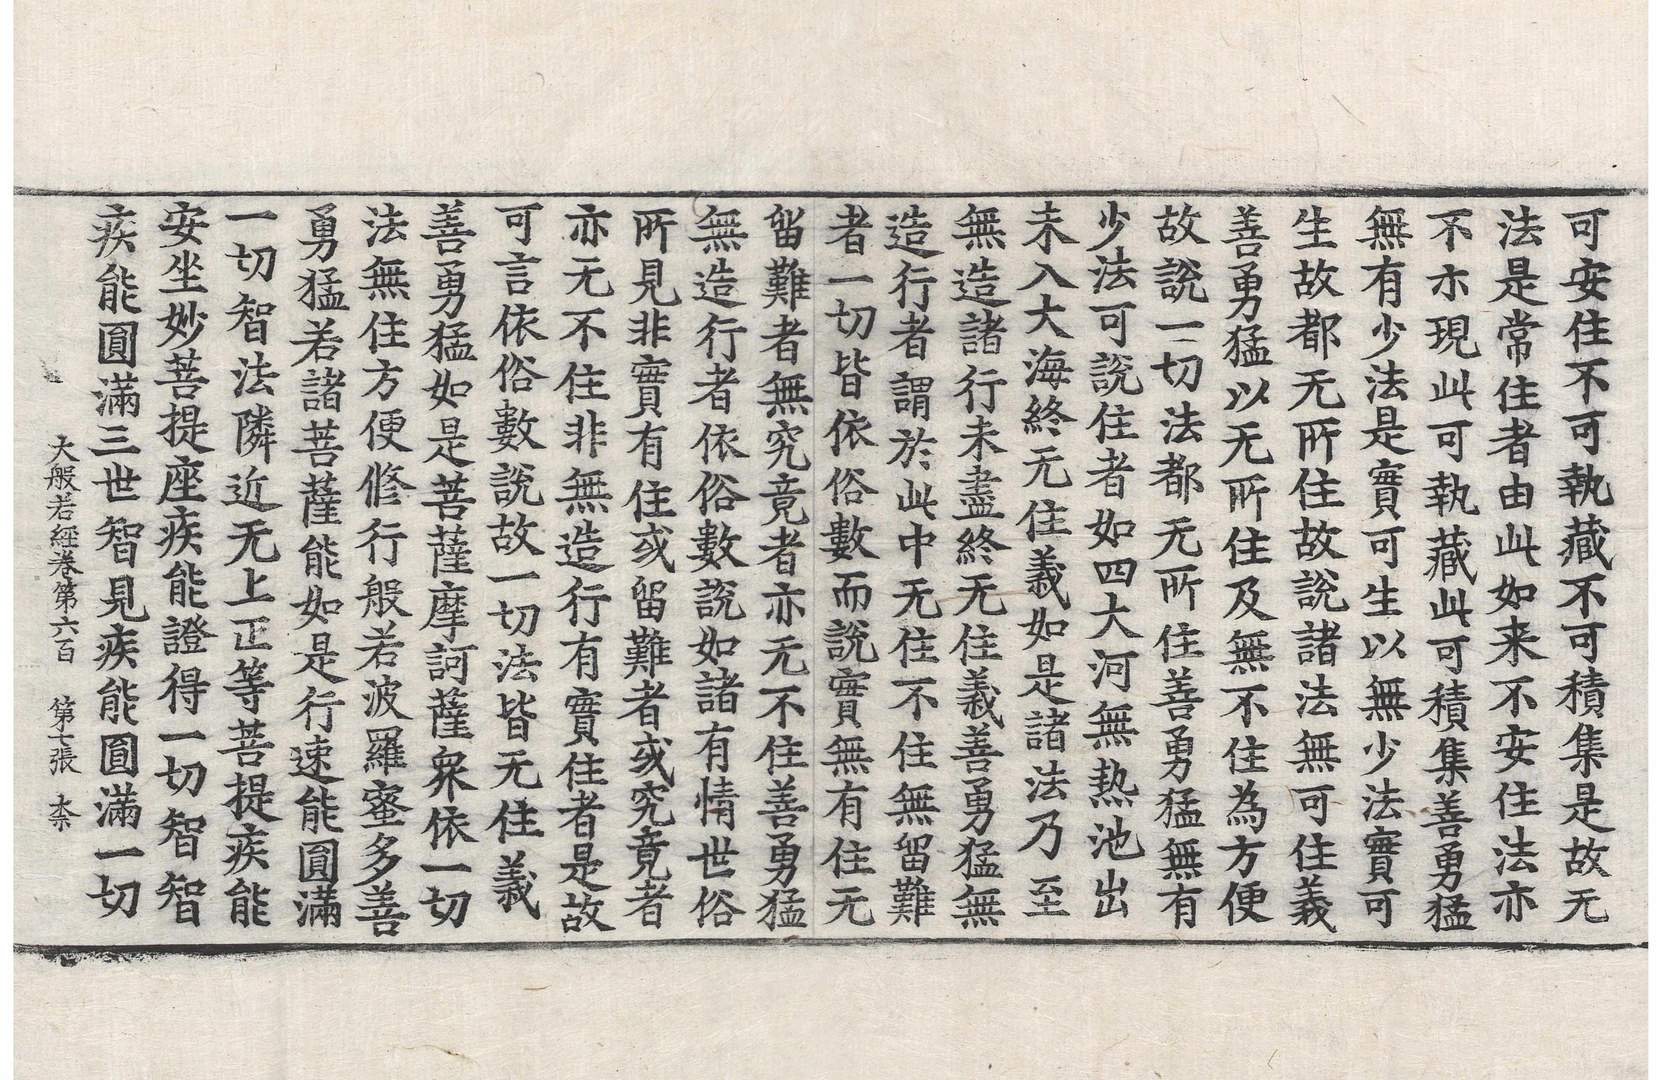 可安住不可執藏不可積集是故无
法是常住者由此如来不安住法亦
不示現此可執藏此可積集善勇猛
無有少法是實可生以無少法實可
生故都无所住故說諸法無可住義
善勇猛以无所住及無不住為方便
故說一切法都无所住善勇猛無有
少法可說住者如四大河無熱池出
未入大海終无住義如是諸法乃至
無造諸行未盡終无住義善勇猛無
造行者謂於此中无住不住無留難
者一切皆依俗數而說實無有住无
留難者無究竟者亦无不住善勇猛
無造行者依俗數說如諸有情世俗
所見非實有住或留難者或究竟者
亦无不住非無造行有實住者是故
可言依俗數說故一切法皆无住義
善勇猛如是菩薩摩訶薩眾依一切
法無住方便修行般若波羅蜜多善
勇猛若諸菩薩能如是行速能圓滿
一切智法隣近无上正等菩提疾能
安坐妙菩提座疾能證得一切智智
疾能圓滿三世智見疾能圓滿一切
大般若經卷第六百 第十張 柰